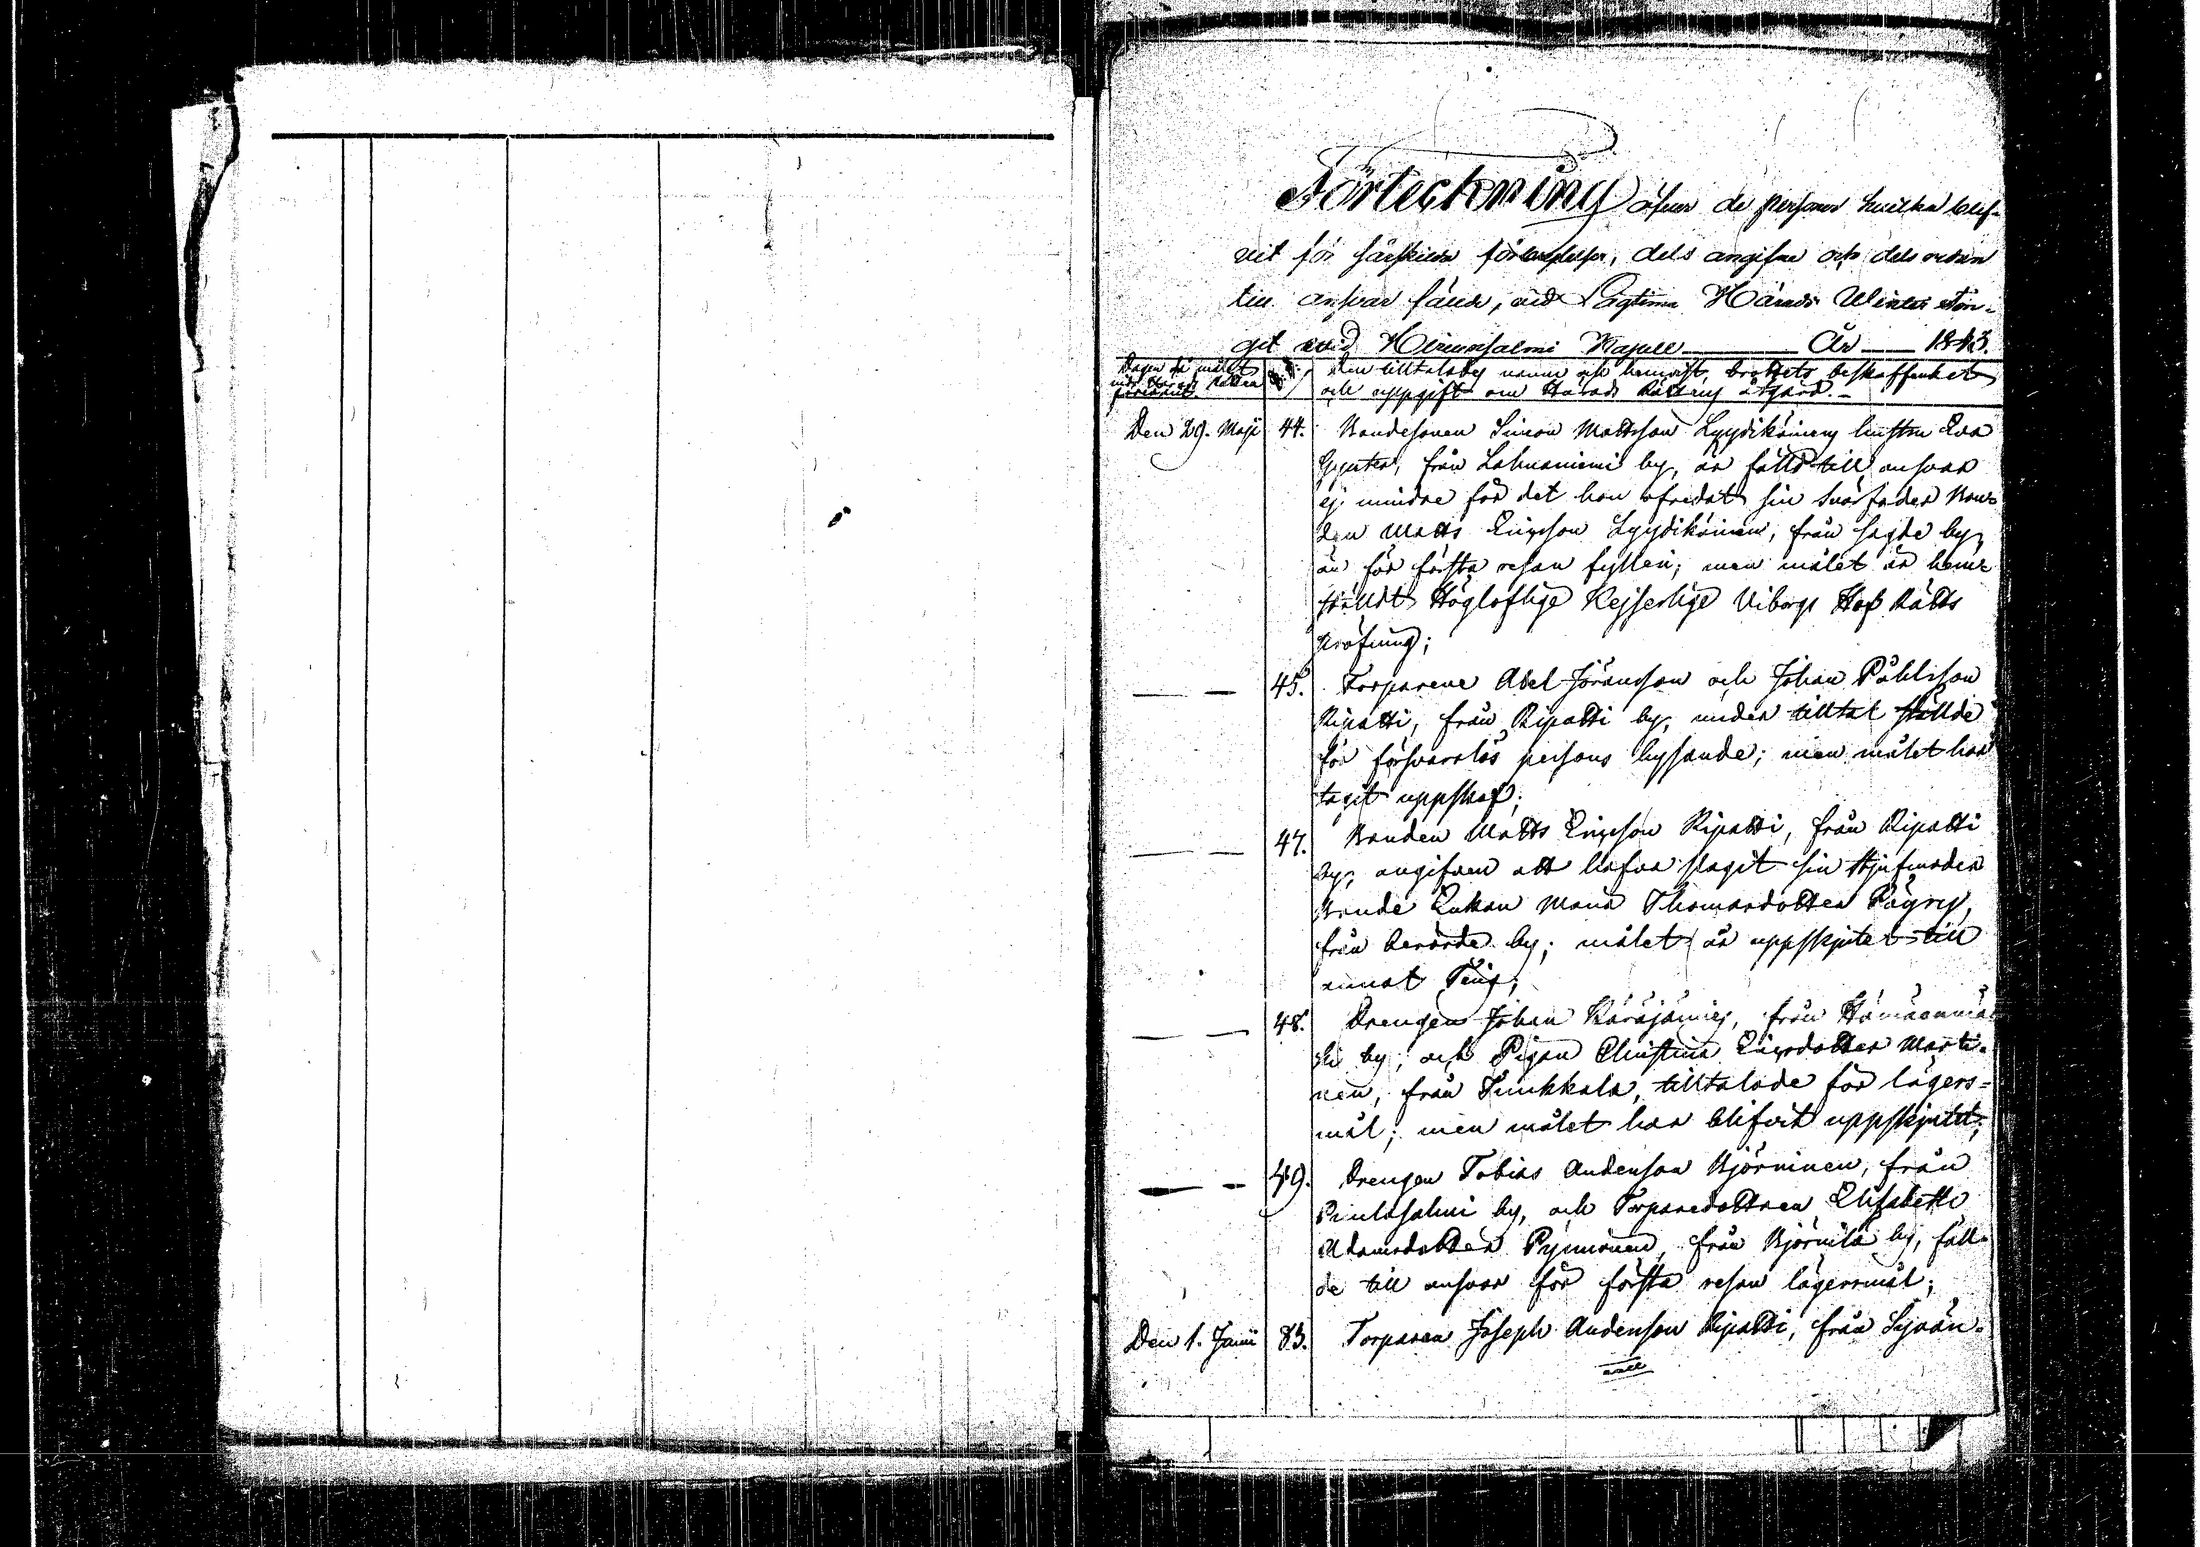 Förteckning öfver de personer hvilka blif-
vit för särskilda förbrytelser, dels angifne och dels redan
till ansvar fälda, vid Lagtima Härads Winter Tin-
get wid Hirvensalmi Kapell År 1843.
Dagen då målet
inför Härads Rätten
förekomit.
den tilltalades namn och hemvist, brottets beskaffenhet
och uppgift om Härads Rättens åtgärd.
Den 29. Maji 44. Bondesonen Simon Mattsson Lyydikäinens hustru Eva
från Lahnaniemi by, är fälld till ansvar
ej mindre för det hon ofredat sin Svärfader Bon-
den Matts Ericsson Lyydikäinen, från sagde by,
än för första resan fylleri; men målet är hem-
ställdt Högloflige Kejserlige Viborgs Hof Rätts
pröfning;
45. Torparene Abel Göransson och Johan Påhlsson
Ripatti, från Ripatti by, under tilltal ställde
för försvarslös persons hysande; men målet har
tagit uppskof;
47. Bonden Matts Ericsson Ripatti, från Ripatti
by, angifven att hafva slagit sin Stjufmoder
Bonde Enkan Maria Thomasdotter Pöyry,
från berörde by; målet är uppskjutet till
annat Ting;
48. Drengen Johan Käräjämies, från Hämäänmä-
ki by, och Pigan Christina Ericsdotter Marti-
nen, från Suukkala, tilltalade för lägers-
mål; men målet har blifvit uppskjutet;
49. Drengen Tobias Andersson Björninen, från
Puulasalmi by, och Torparedottren Elisabeth
Adamsdotter Pynnönen, från Björnilä by, fäll-
de till ansvar för första resan lägersmål;
Den 1. Junii 83. Torparen Joseph Andersson Ripatti, från Syvän-